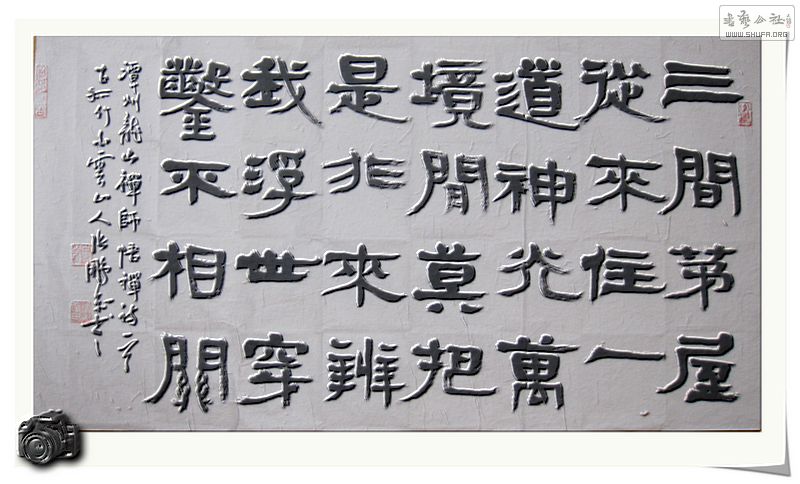 三間茅屋
從來住一
道神光萬
境閒莫把
是非來辨
我浮世穿
鑿不相關
潭州龍山禪師悟禪詩一首
雲山人
書藝公社
WWW.SHUFA.ORG